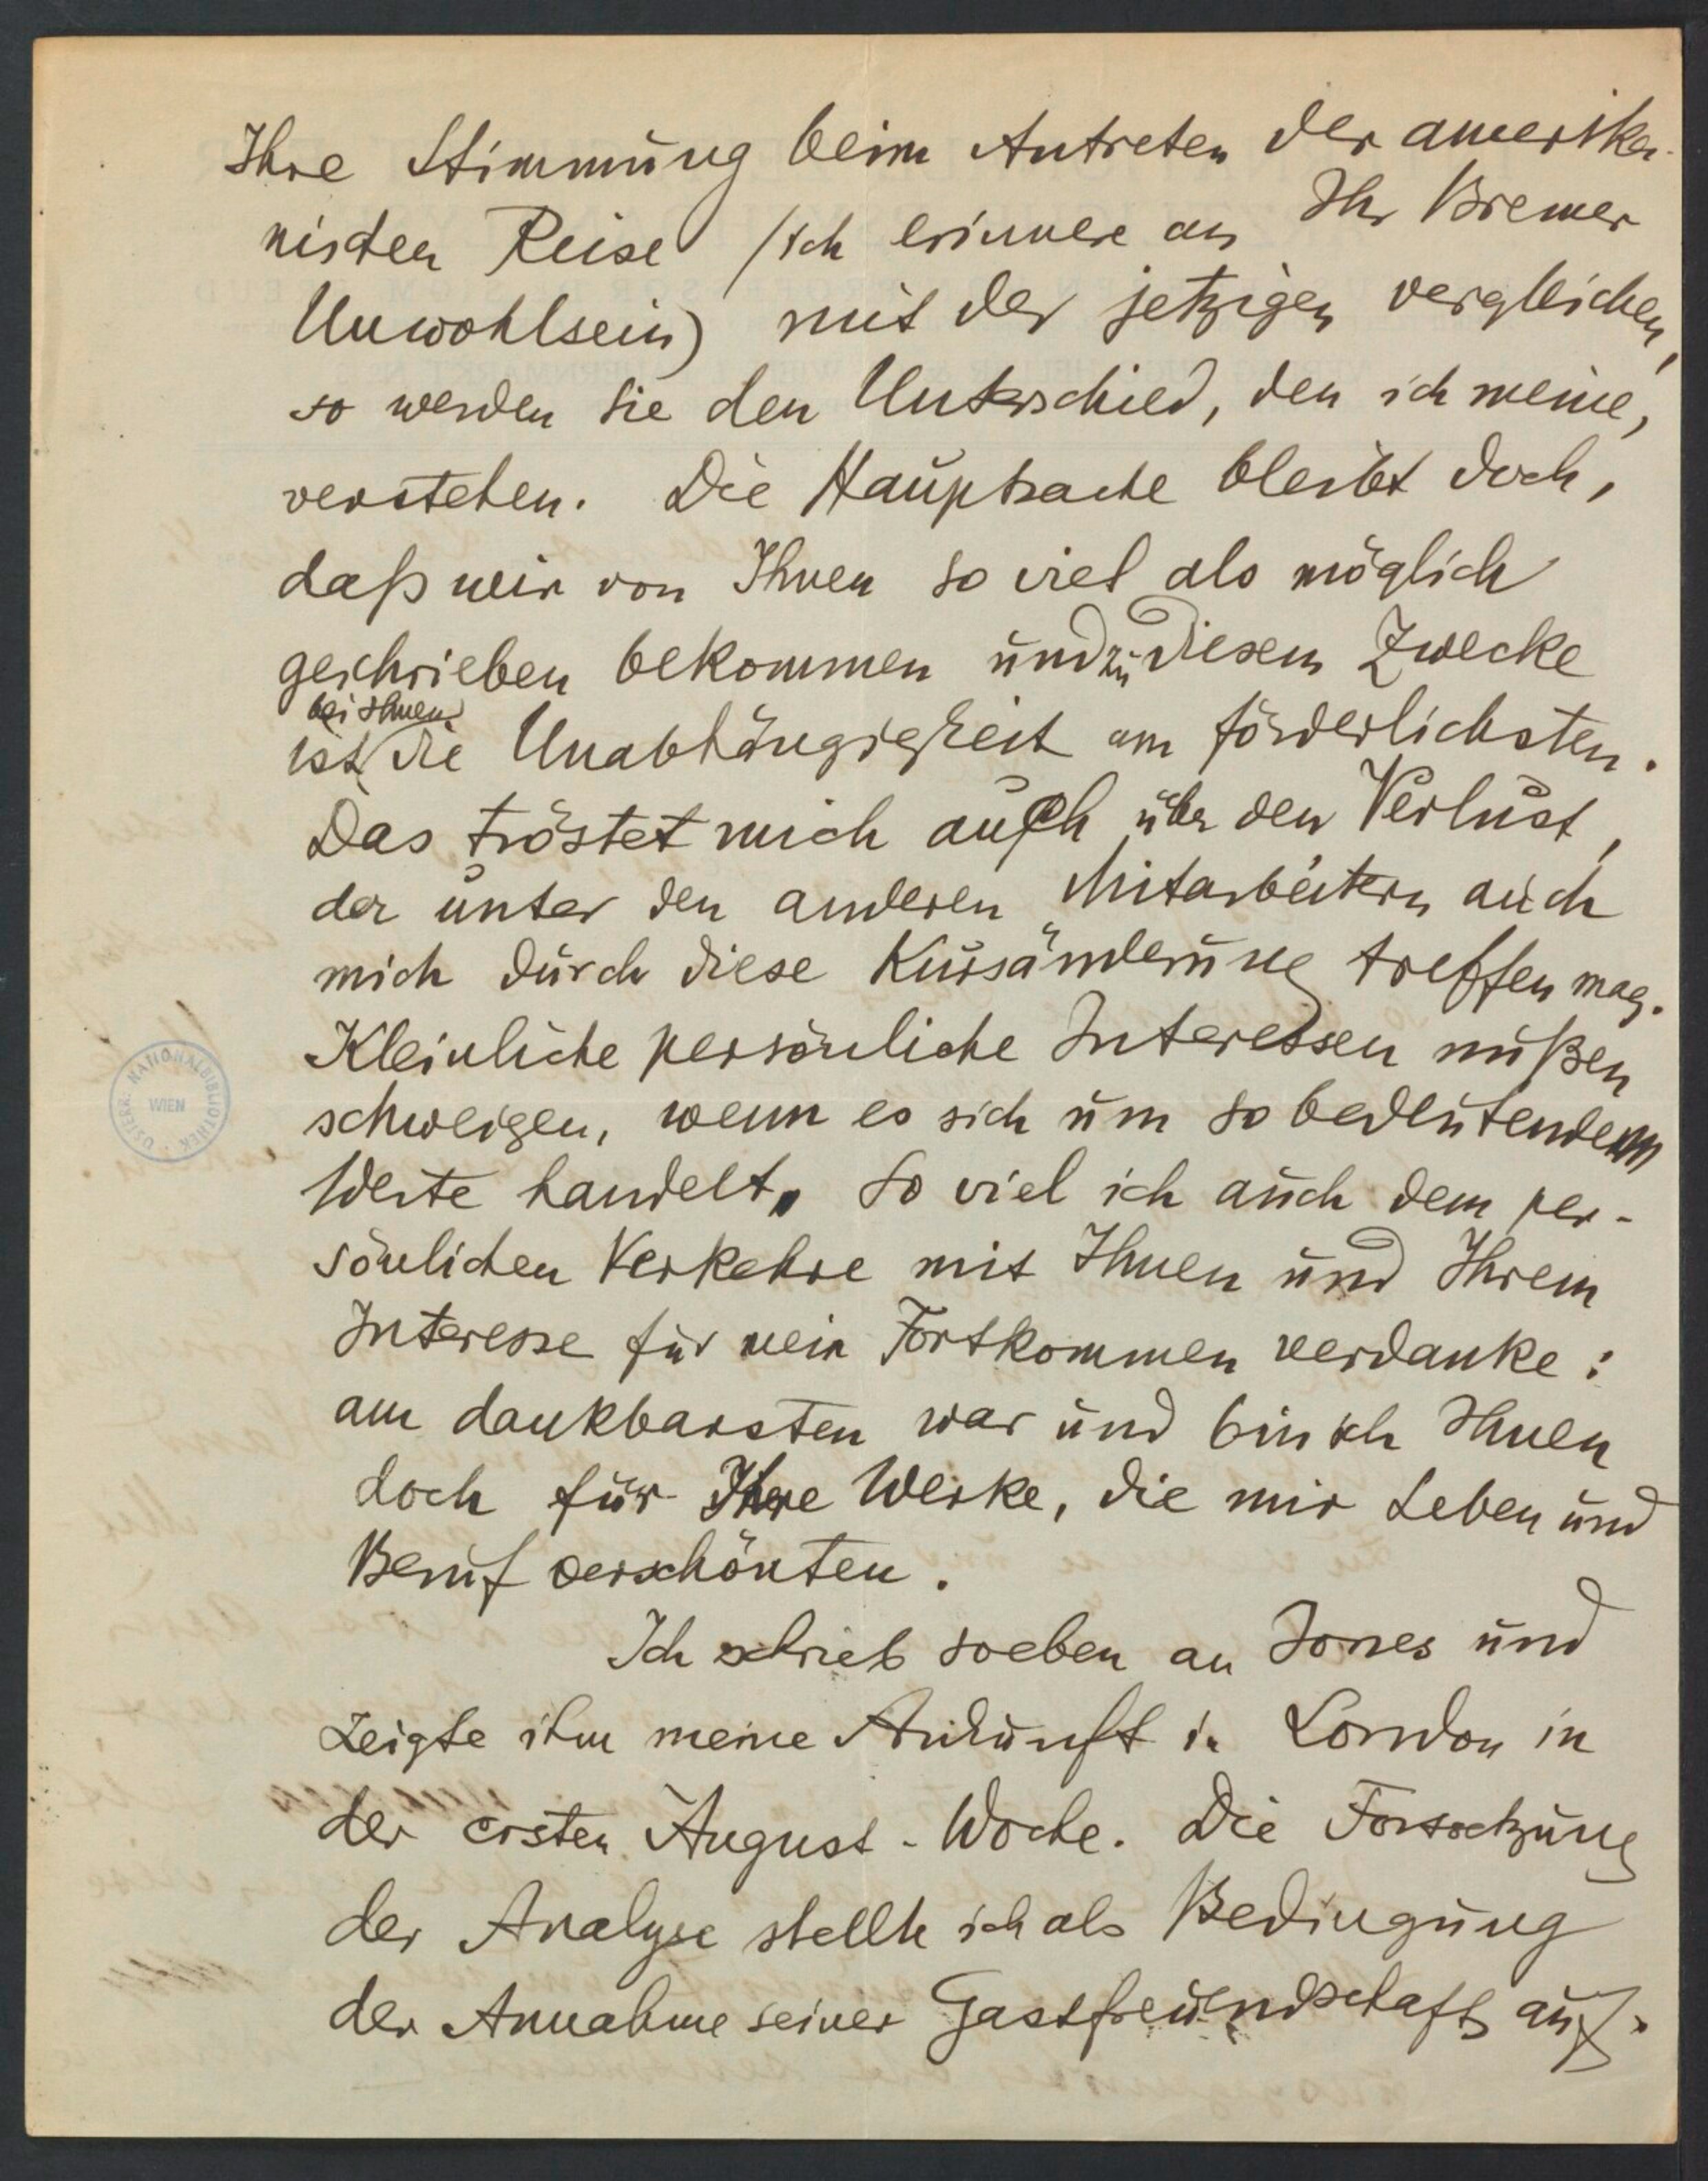 Ihre Stimmung beim Antreten der amerika-
nischen Reise (ich erinnere an Ihr Bremer
Unwohlsein) mit der jetzigen vergleichen,
so werden sie den Unterschied, den ich meine,
verstehen. Die Hauptsache bleibt doch,
daß wir von Ihnen so viel als möglich
geschrieben bekommen und zu diesem Zwecke
bei Ihnen
ist die Unabhängigkeit am förderlichsten.
Das tröstet mich auch über den Verlust,
der unter den anderen Mitarbeitern auch
mich durch diese Kursänderung treffen mag.
Kleinliche persönliche Interessen müßen
schweigen, wenn es sich um so bedeutende
Werte handelt. So viel ich auch dem per-
sönlichen Verkehre mit Ihnen und Ihrem
Interesse für mein Fortkommen verdanke:
am dankbarsten war und bin ich Ihnen
doch für Ihre Werke, die mir Leben und
Beruf verschönten.
Ich schrieb soeben an Jones und
zeigte ihm meine Ankunft in London in
der ersten August-Woche. Die Fortsetzung
der Analyse stellte ich als Bedingung
der Annahme seiner Gastfreundschaft auf.
ÖSTERR. NATIONALBIBLIOTHEK
WIEN